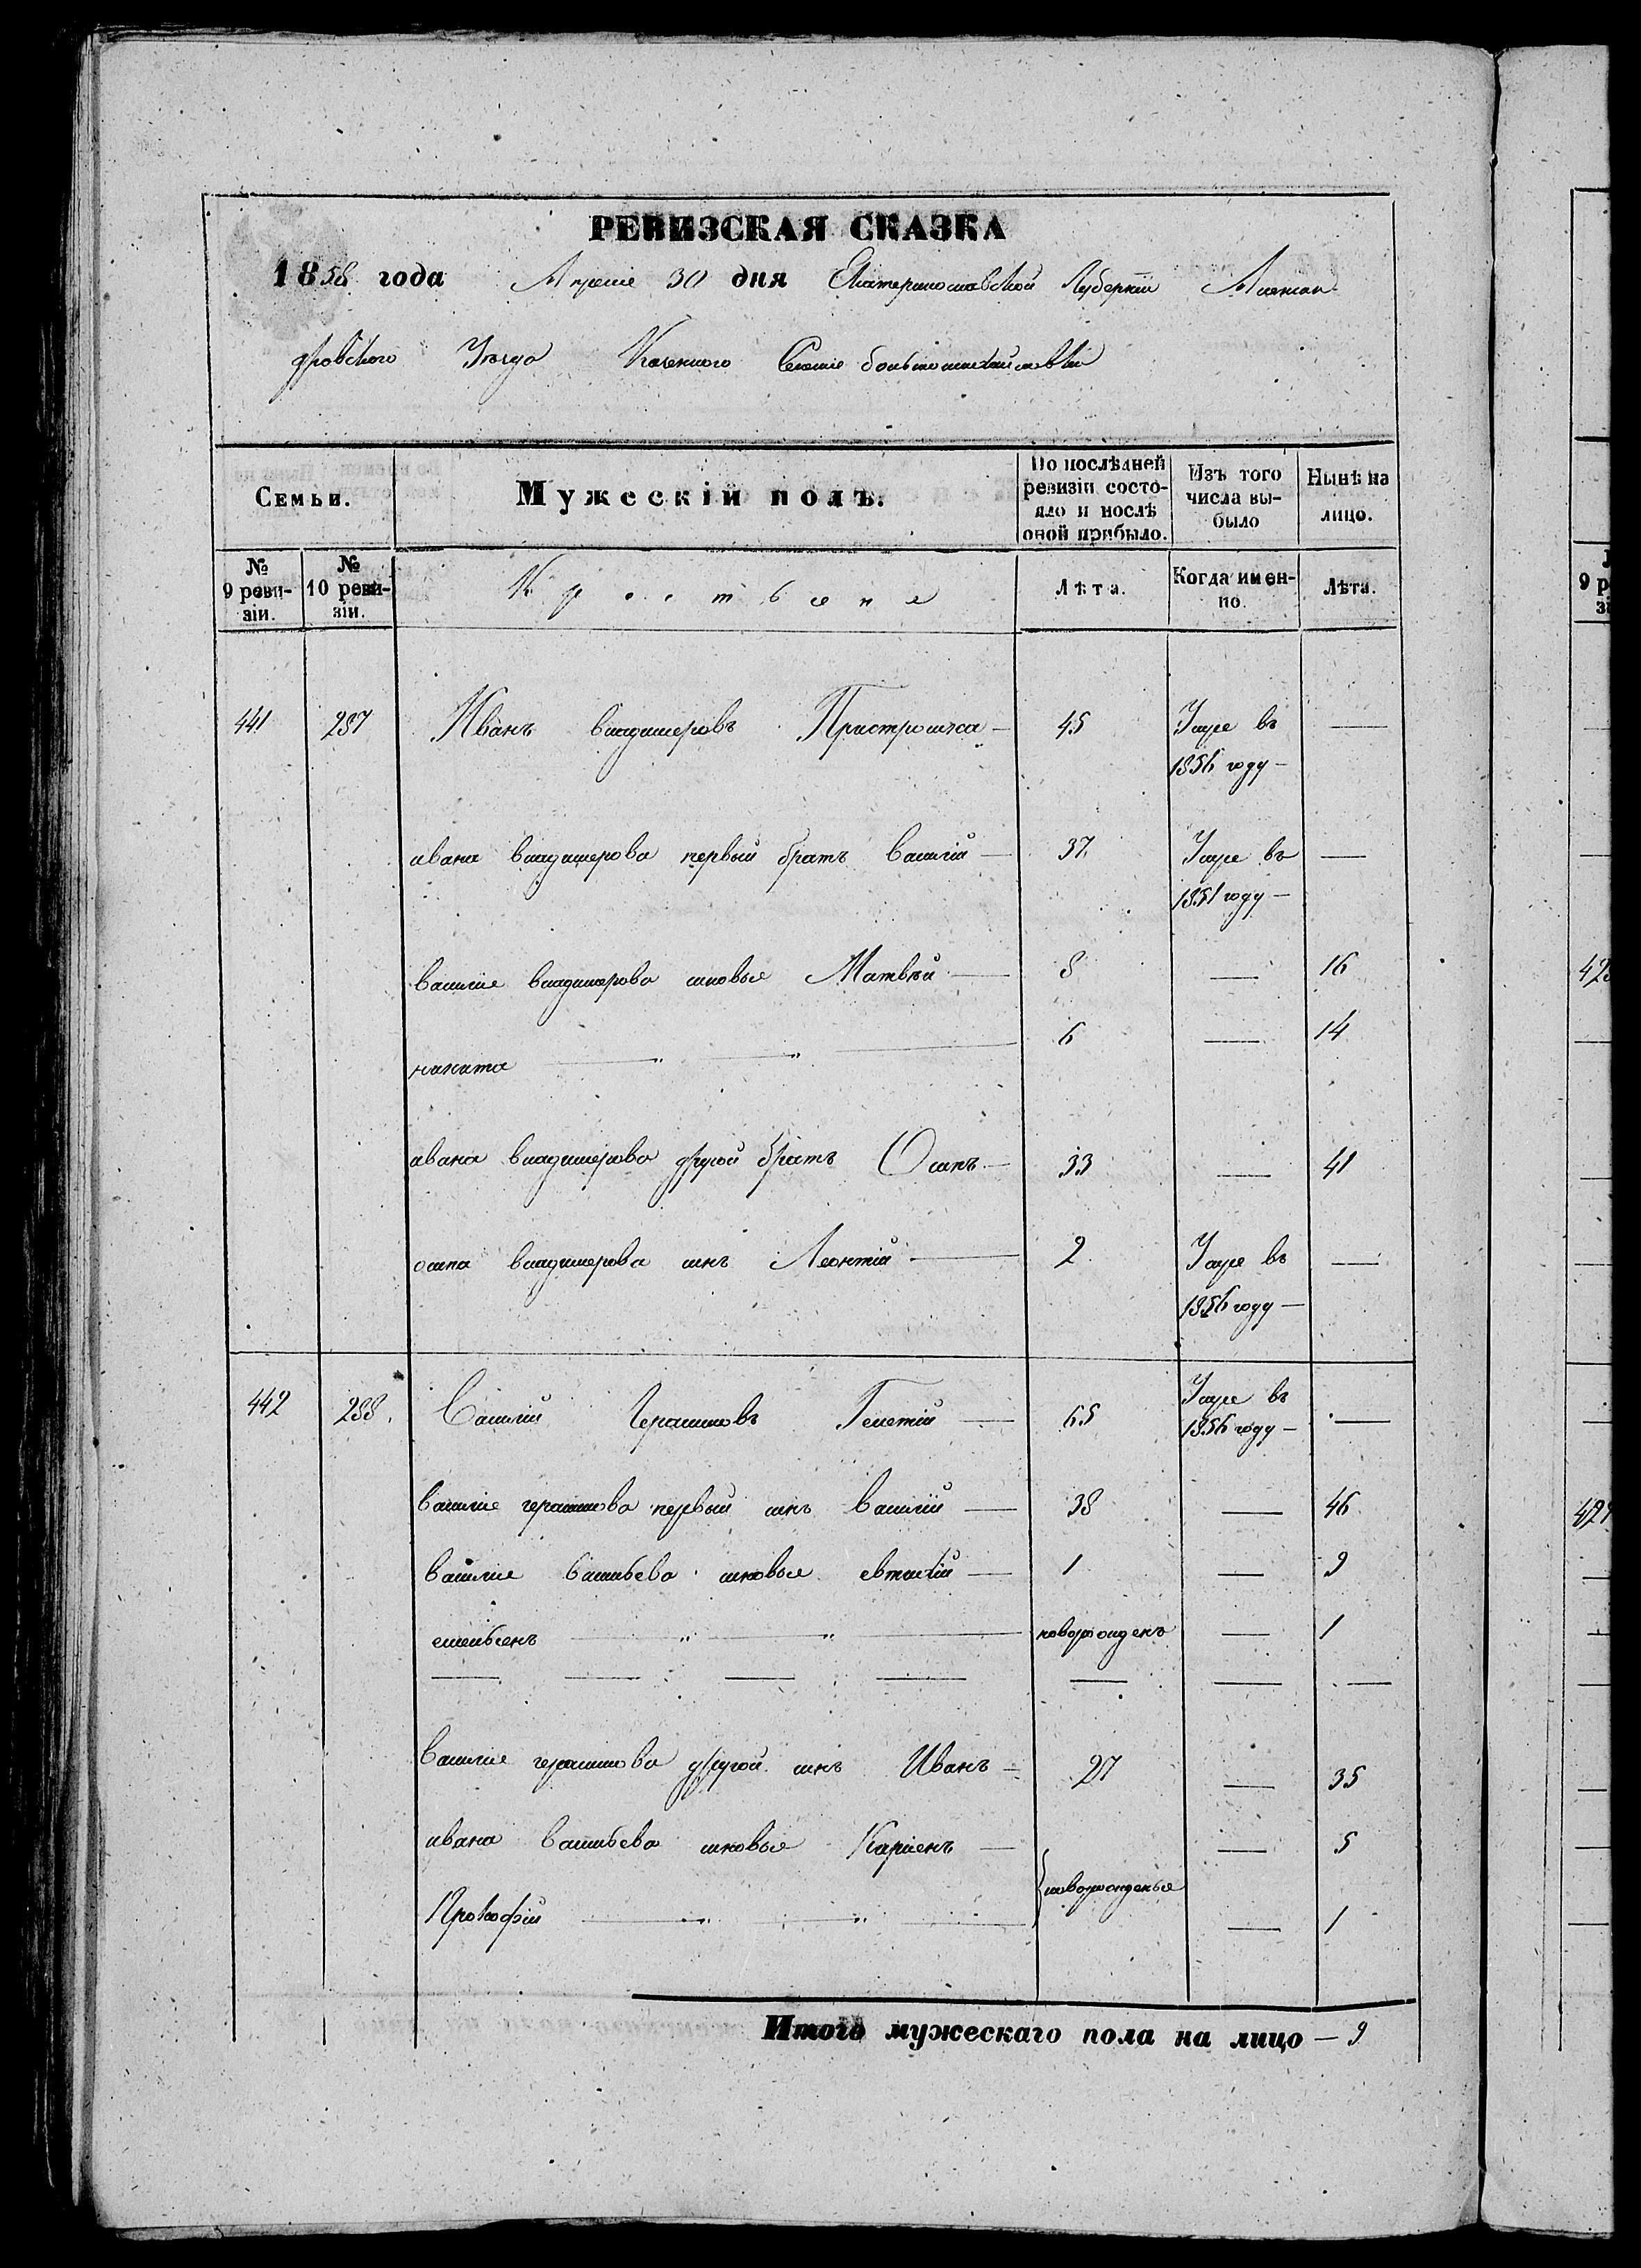 РЕВИЗСКАЯ СКАЗКА
1858 года Апреле 30 дня Екатеринославской Губернiи Алексан-
дровского Уезда Казенного Селенiе большомихайловки
Семьи.
Мужескiй полъ.
По послѣдней ревизiи состояло и послѣ оной прибыло.
Изъ того числа выбыло
Нынѣ на лицо.
№ 9 ревизiи.
№ 10 ревизiи.
Крестьене
Лѣта.
Когда именно.
Лѣта.
441 287 Иванъ владимеровъ Пристрошка — 45 Умре въ 1856 году — —
ивана владимерова первый братъ василiй — 37 Умре въ 1851 году — —
василiе владимерова сновье Матвѣй — 8 — 16
никита — " — " — 6 — 14
ивана владимерова другой братъ Осипъ — 33 — 41
осипа владимерова снъ Леонтiй — 2 Умре въ 1856 году — —
442 288. Василiй Герасимовъ Гелетiй — 65 Умре въ 1856 году — —
василiе герасимова первый снъ василiй — 38 — 46
василiе васильева сновье евтихiй — 1 — 9
емельенъ — " — " — новорожденъ — 1
— — — — — — —
василiе герасимова другой снъ Иванъ — 27 — 35
ивана васильева сновье Карпенъ — новорожденые — 5
Прокофiй — " — " — — 1
Итого мужескаго пола на лицо — 9
9 ре
зi
428
429